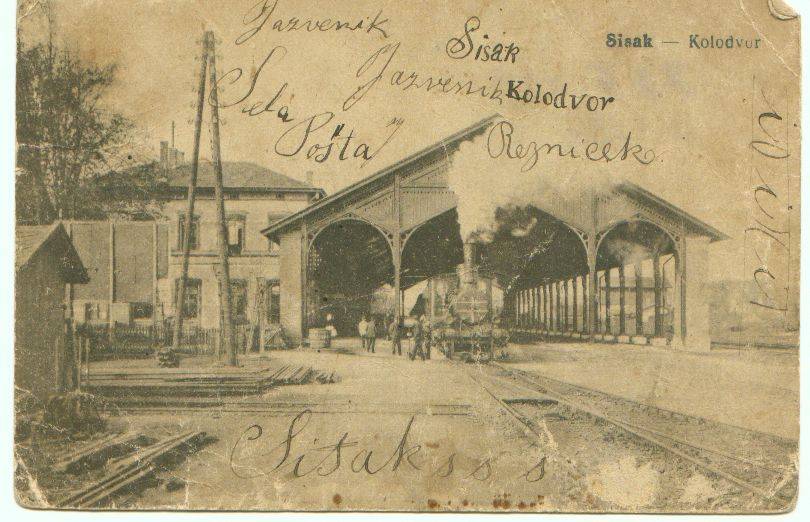 Jazvenik
Sisak
Sisak — Kolodvor
Jazvenik
Kolodvor
Sela
Pošta
Reznicek
Sisak s s s